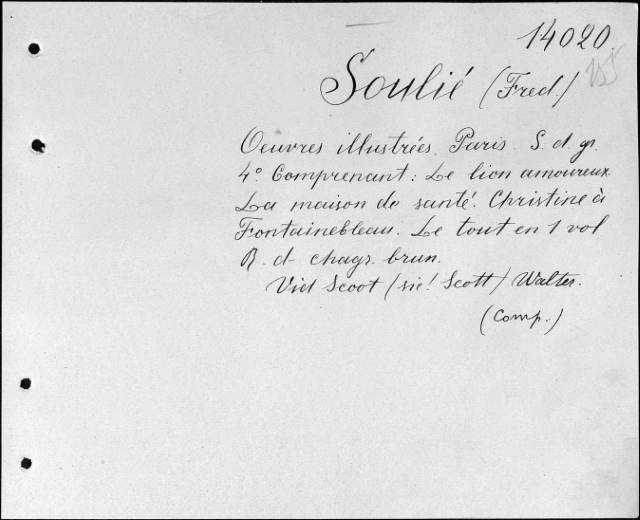 14020
Soulié (Fred.)
Oeuvres illustrées. Paris. S. d. gr.
4º. Comprenant: Le lion amoureux.
La maison de santé. Christine à
Fontainebleau. Le tout en 1 vol
R. d- chagr. brun.
Vid Scoot (sic! Scott) Walter.
(Comp.)